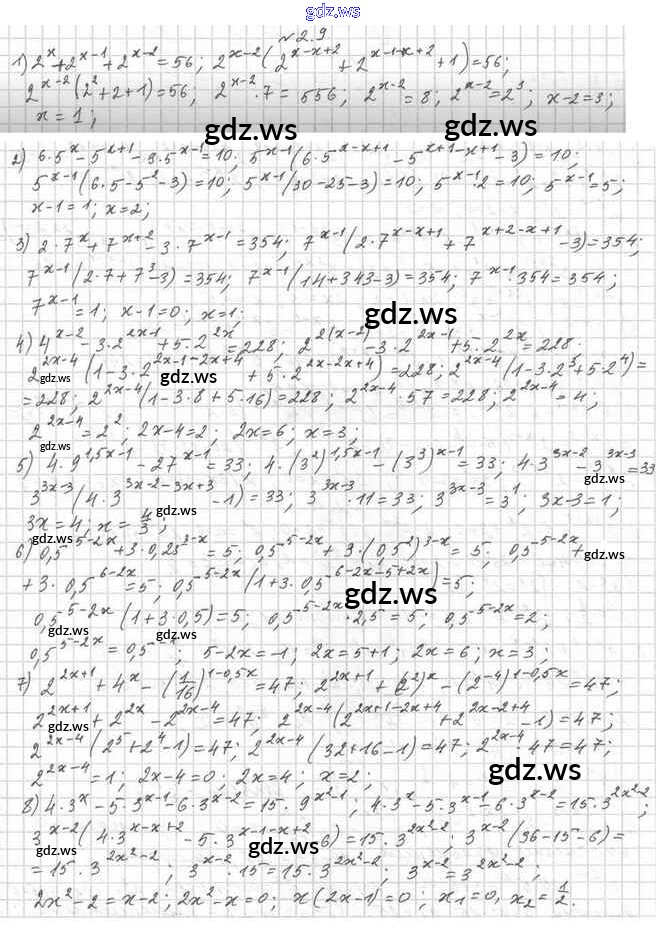 gdz.ws
№ 2.9
1) 2^x + 2^{x-1} + 2^{x-2} = 56; 2^{x-2}(2^{x-x+2} + 2^{x-1-x+2} + 1) = 56;
2^{x-2}(2^2+2+1) = 56; 2^{x-2}·7 = 556; 2^{x-2} = 8; 2^{x-2} = 2^3; x-2 = 3;
x = 1;
gdz.ws gdz.ws
2) 6·5^x - 5^{x+1} - 3·5^{x-1} = 10; 5^{x-1}(6·5^{x-x+1} - 5^{x+1-x+1} - 3) = 10;
5^{x-1}(6·5-5^2-3) = 10; 5^{x-1}(30-25-3) = 10; 5^{x-1}·2 = 10; 5^{x-1} = 5;
x-1 = 1; x = 2;
3) 2·7^x + 7^{x+2} - 3·7^{x-1} = 354; 7^{x-1}(2·7^{x-x+1} + 7^{x+2-x+1} - 3) = 354;
7^{x-1}(2·7+7^3-3) = 354; 7^{x-1}(14+343-3) = 354; 7^{x-1}·354 = 354;
7^{x-1} = 1; x-1 = 0; x = 1;
gdz.ws
4) 4^{x-2} - 3·2^{2x-1} + 5·2^{2x} = 228; 2^{2(x-2)} - 3·2^{2x-1} + 5·2^{2x} = 228.
2^{2x-4}(1-3·2^{2x-1-2x+4} + 5·2^{2x-2x+4}) = 228; 2^{2x-4}(1-3·2^3+5·2^4) =
gdz.ws gdz.ws gdz.ws
= 228; 2^{2x-4}(1-3·8+5·16) = 228; 2^{2x-4}·57 = 228; 2^{2x-4} = 4;
2^{2x-4} = 2^2; 2x-4 = 2; 2x = 6; x = 3;
gdz.ws
5) 4·9^{1,5x-1} - 27^{x-1} = 33; 4·(3^2)^{1,5x-1} - (3^3)^{x-1} = 33; 4·3^{3x-2} - 3^{3x-3} = 33
gdz.ws
3^{3x-3}(4·3^{3x-2-3x+3} - 1) = 33; 3^{3x-3}·11 = 33; 3^{3x-3} = 3^1; 3x-3 = 1;
3x = 4; x = 4/3;
gdz.ws gdz.ws gdz.ws
6) 0,5^{5-2x} + 3·0,25^{3-x} = 5; 0,5^{5-2x} + 3·(0,5^2)^{3-x} = 5; 0,5^{5-2x} +
gdz.ws
+ 3·0,5^{6-2x} = 5; 0,5^{5-2x}(1+3·0,5^{6-2x-5+2x}) = 5;
gdz.ws
0,5^{5-2x}(1+3·0,5) = 5; 0,5^{5-2x}·2,5 = 5; 0,5^{5-2x} = 2;
gdz.ws gdz.ws
0,5^{5-2x} = 0,5^{-1}; 5-2x = -1; 2x = 5+1; 2x = 6; x = 3;
7) 2^{2x+1} + 4^x - (1/16)^{1-0,5x} = 47; 2^{2x+1} + (2^2)^x - (2^{-4})^{1-0,5x} = 47;
2^{2x+1} + 2^{2x} - 2^{2x-4} = 47; 2^{2x-4}(2^{2x+1-2x+4} + 2^{2x-2x+4} - 1) = 47;
gdz.ws gdz.ws
2^{2x-4}(2^5+2^4-1) = 47; 2^{2x-4}(32+16-1) = 47; 2^{2x-4}·47 = 47;
2^{2x-4} = 1; 2x-4 = 0; 2x = 4; x = 2;
gdz.ws
8) 4·3^x - 5·3^{x-1} - 6·3^{x-2} = 15·9^{x^2-1}; 4·3^x - 5·3^{x-1} - 6·3^{x-2} = 15·3^{2x^2-2};
3^{x-2}(4·3^{x-x+2} - 5·3^{x-1-x+2} - 6) = 15·3^{2x^2-2}; 3^{x-2}(36-15-6) =
gdz.ws gdz.ws gdz.ws
= 15·3^{2x^2-2}; 3^{x-2}·15 = 15·3^{2x^2-2}; 3^{x-2} = 3^{2x^2-2};
2x^2-2 = x-2; 2x^2-x = 0; x(2x-1) = 0; x_1 = 0, x_2 = 1/2.
gdz.ws gdz.ws